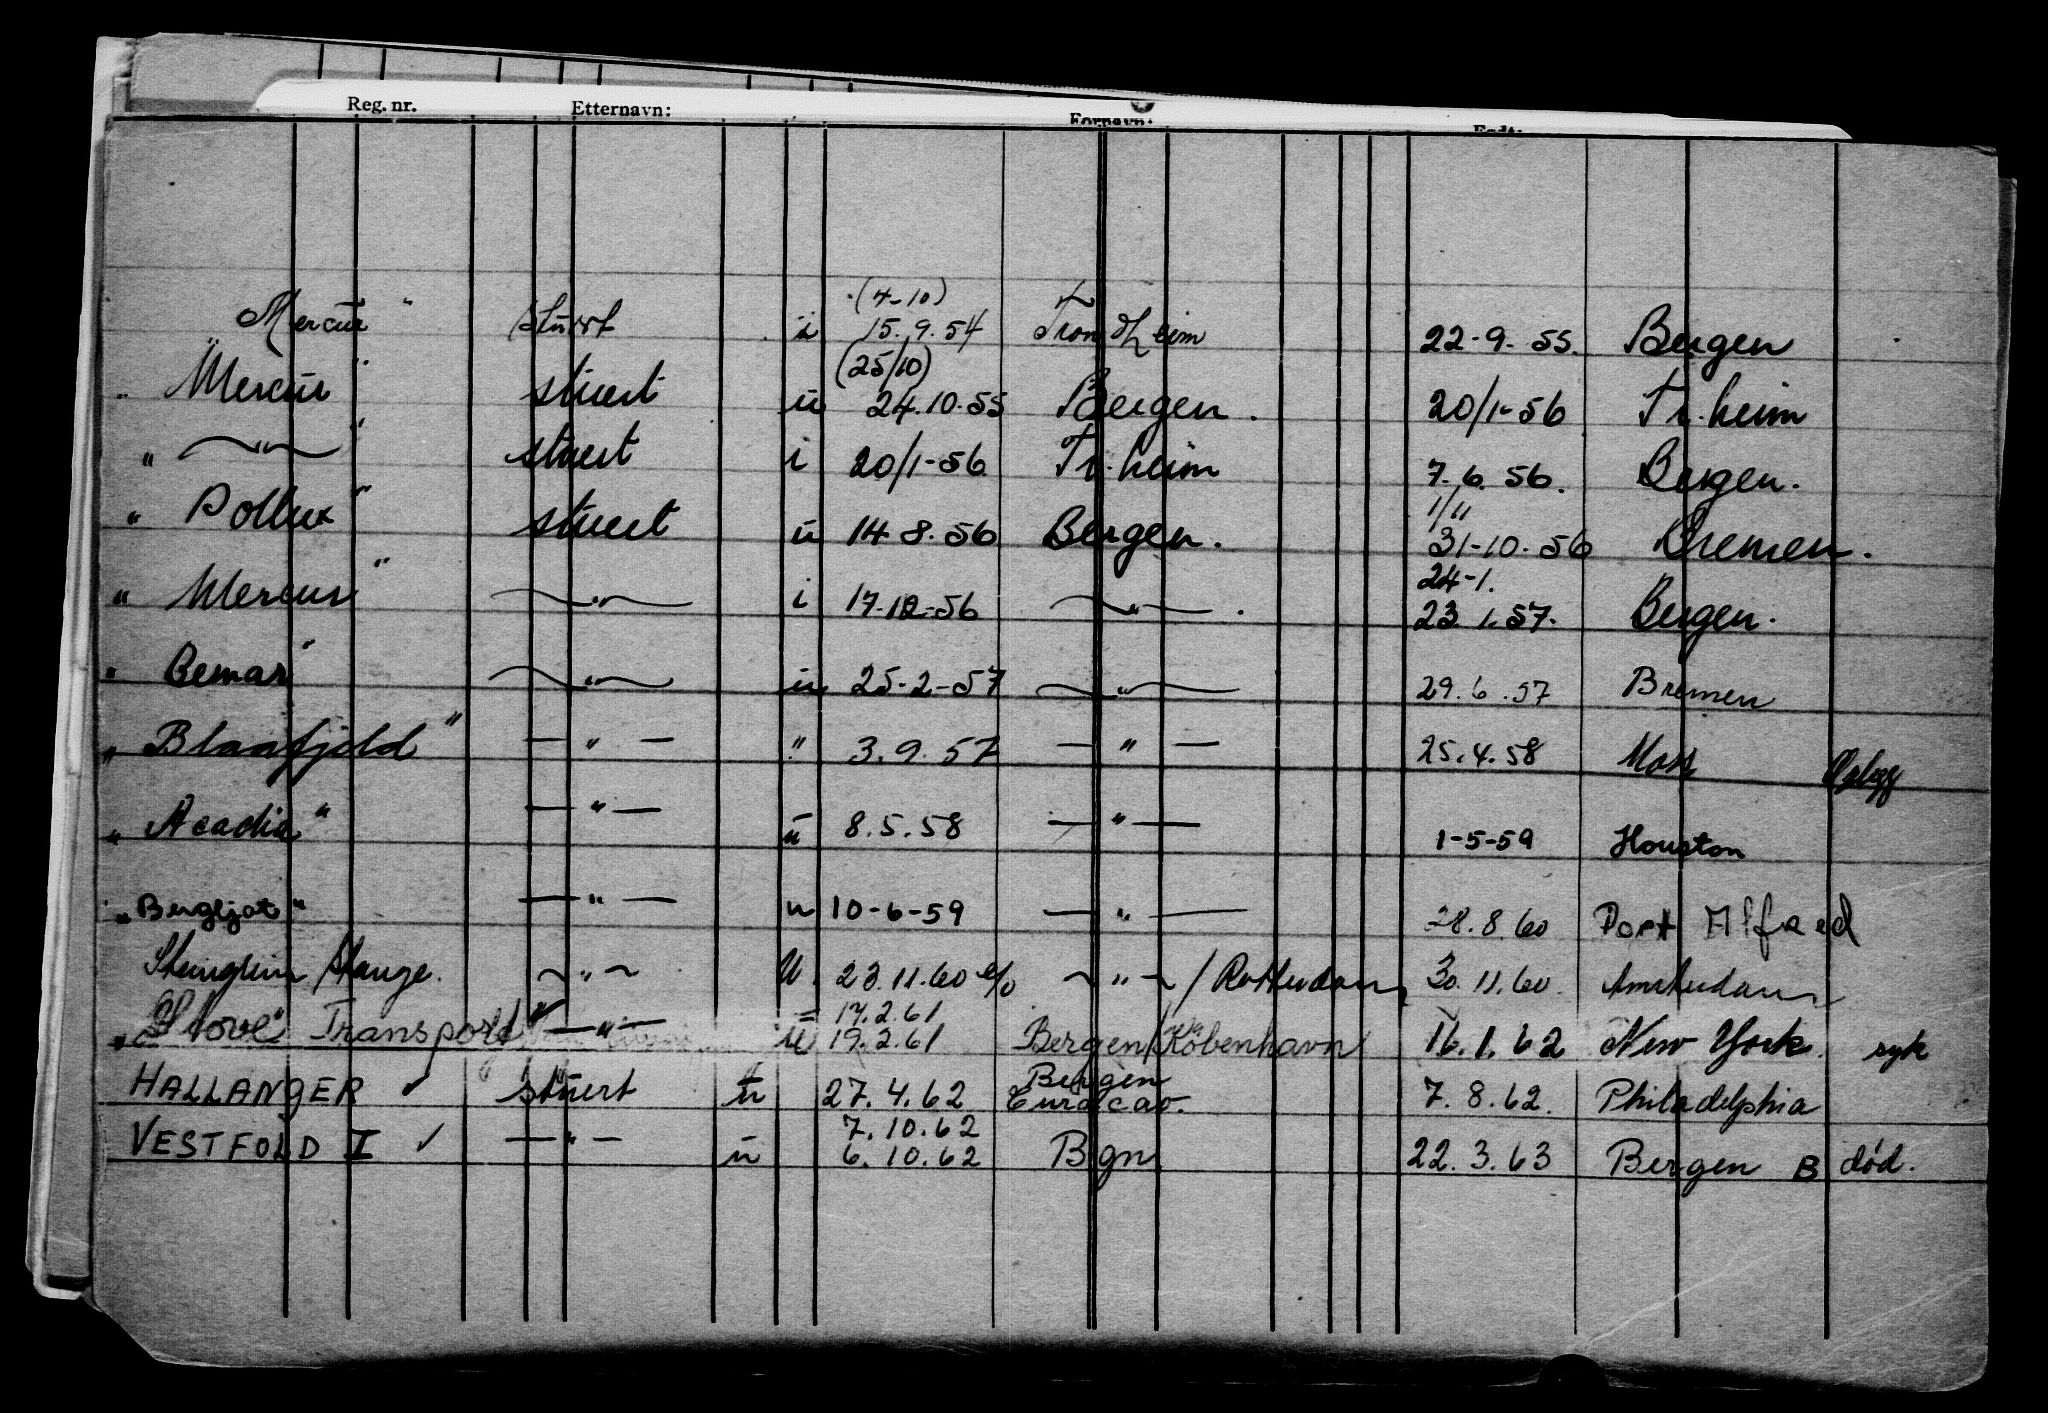 Reg. nr. Etternavn: Fornavn: Født:
(4-10)
Mercur" stuert i 15.9.54 Trondheim 22-9-55. Bergen
(25/10)
"Mercur" stuert u 24.10.55 Bergen. 20/1-56 Tr.heim
" —"— " stuert i 20/1-56 Tr.heim 7.6.56. Bergen.
1/11
"Pollux" stuert u 14-8-56 Bergen. 31-10-56 Bremen.
24-1.
"Mercur" —"— i 17-12-56 —"—. 23.1.57. Bergen.
"Bemar" —"— u 25-2-57 —"— 29.6.57 Bremen
"Blaafjeld" —"— " 3.9.57 —"— 25.4.58 Moss Opлegg
"Acadia" —"— u 8.5.58 —"— 1-5-59 Houston
"Bergljot" —"— u 10-6-59 —"— 28.8.60 Port Alfred
Stange. ~"~ U. 23.11.60 ~"~/Rotterdam 30.11.60. Amsterdam
17.2.61
"Stove Transport" —"— u 19.2.61 Bergen/København 16.1.62 New York. syk
Bergen
HALLANGER ✓ stuert u 27.4.62 Curacao. 7.8.62. Philadelphia
7.10.62
VESTFOLD I ✓ —"— u 6.10.62 Bgn 22.3.63 Bergen B død.